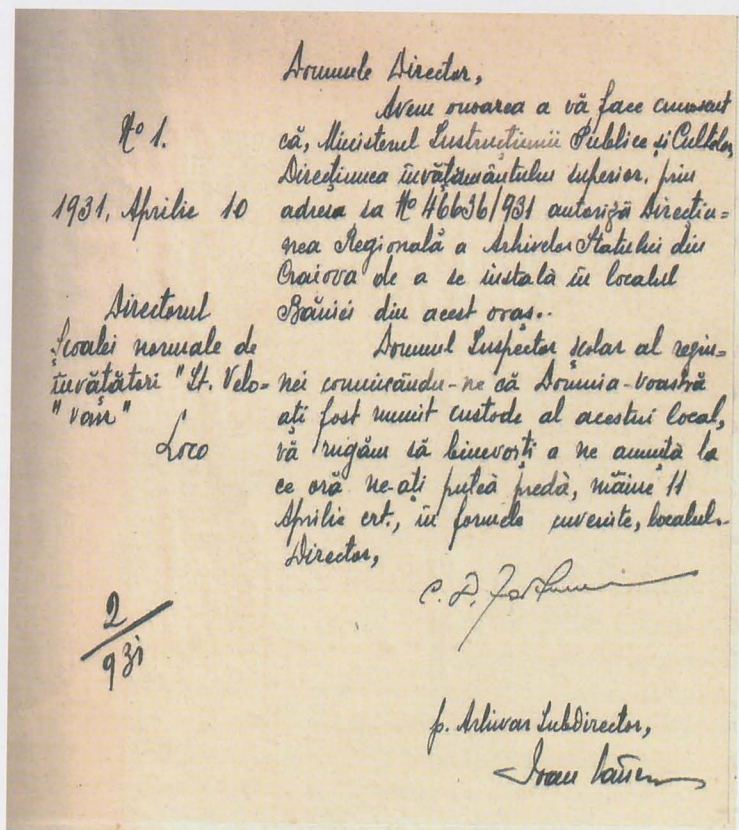 Domnule Director,
Avem onoarea a vă face cunoscut
că, Ministerul Instrucțiunii Publice și Cultelor,
Direcțiunea învățământului superior, prin
adresa sa Nº 46636/931 autoriză Direcțiu=
nea Regională a Arhivelor Statului din
Craiova de a se instală în localul
Băniei din acest oraș..
Domnul Inspector școlar al regiu=
nei comunicându-ne că Domnia-voastră
ați fost numit custode al acestui local,
vă rugăm să binevoiți a ne anunță la
ce oră ne-ați puteà predà, mâine 11
Aprilie crt., în formele cuvenite, localul.-
Director,
C. D.
p. Arhivar Subdirector,
Ioan
Nº 1.
1931, Aprilie 10
Directorul
Școalei normale de
învățători "Șt. Velo=
"van"
Loco
2/931